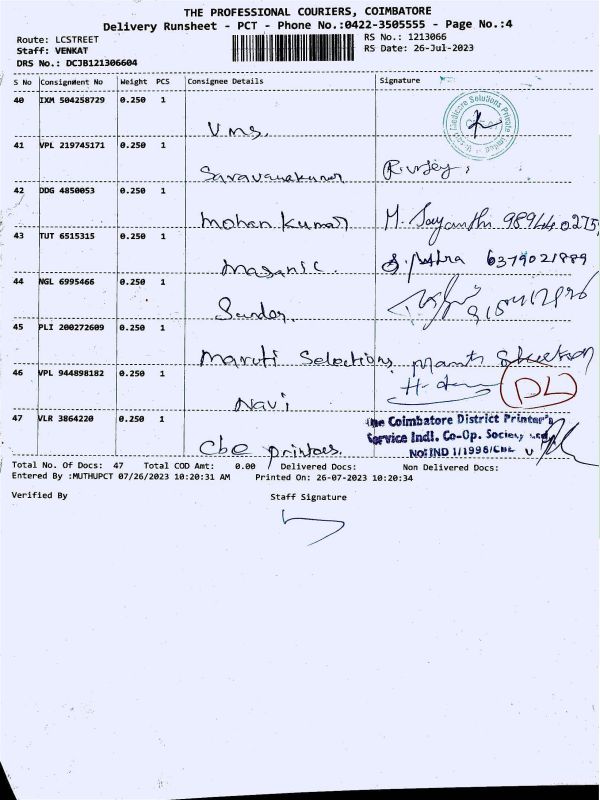 THE PROFESSIONAL COURIERS, COIMBATORE
Delivery Runsheet - PCT - Phone No.:0422-3505555 - Page No.:4
Route: LCSTREET RS No.: 1213066
Staff: VENKAT RS Date: 26-Jul-2023
DRS No.: DCJB121306604
S No Consignment No Weight PCS Consignee Details Signature
40 IXM 504258729 0.250 1
Vms.
41 VPL 219745171 0.250 1
Saravanakumar
42 DDG 4850053 0.250 1
Mohan kumar M. Jayanthi
43 TUT 6515315 0.250 1
6379021889
44 NGL 6995466 0.250 1
Sundar.
45 PLI 200272609 0.250 1
Maruti Selections
46 VPL 944898182 0.250 1
Navi DL
47 VLR 3864220 0.250 1
The Coimbatore District Printer's
Service Indl. Co-Op. Society Ltd
No: IND 1/1996/CBE
Cbe printers.
Total No. Of Docs: 47 Total COD Amt: 0.00 Delivered Docs: Non Delivered Docs:
Entered By :MUTHUPCT 07/26/2023 10:20:31 AM Printed On: 26-07-2023 10:20:34
Verified By Staff Signature